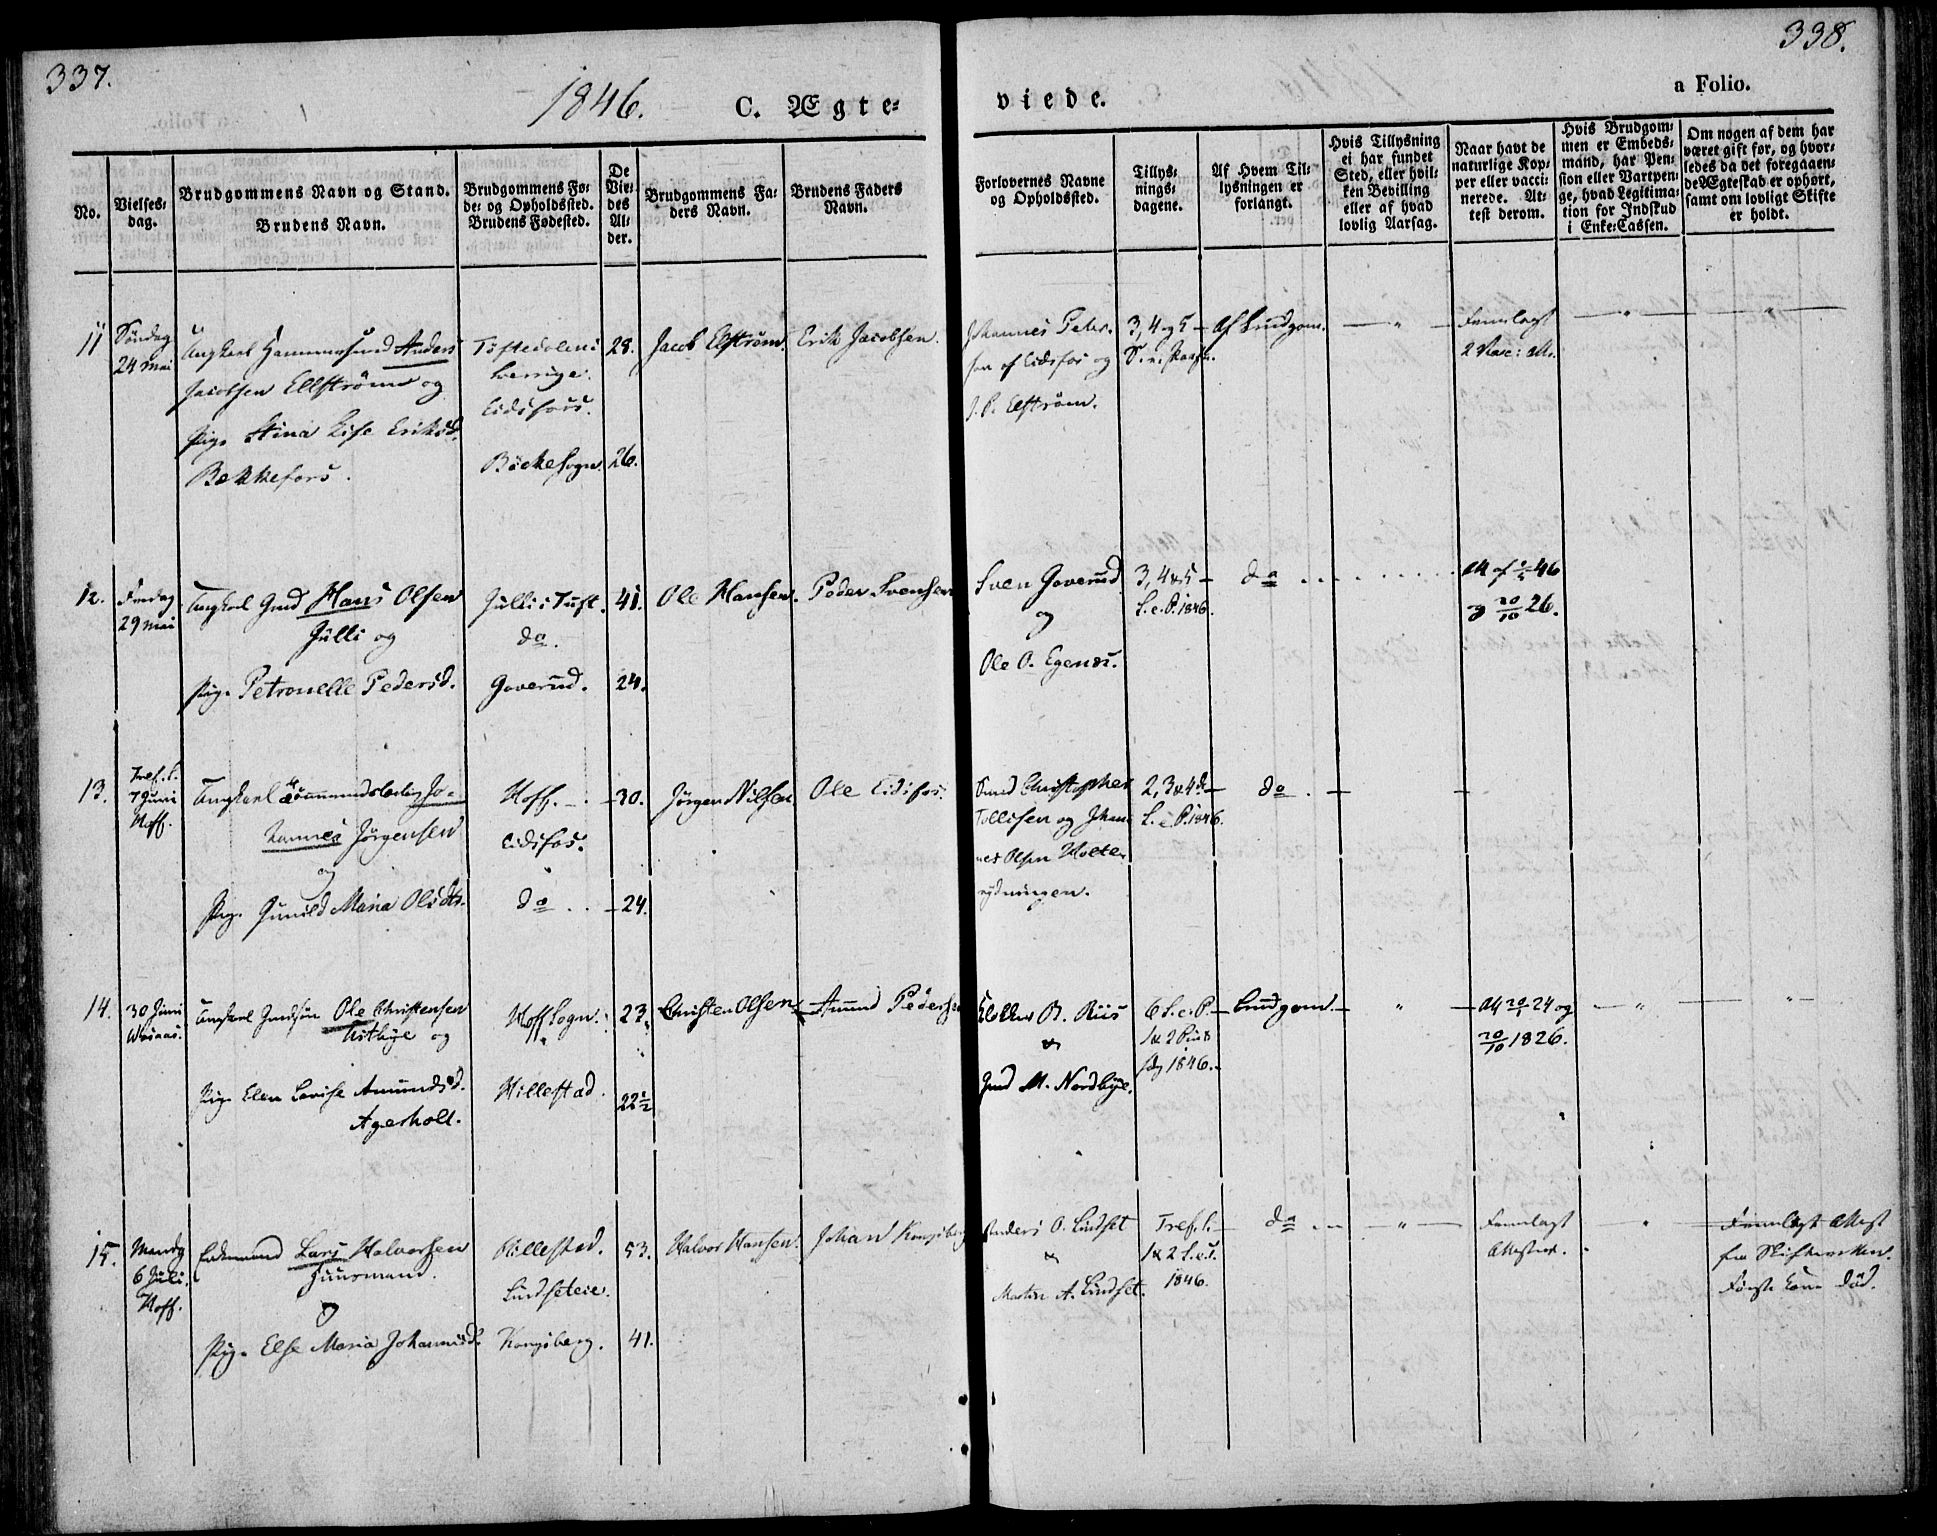 337.
338.
1846.
C. Ægte-
viede.
a Folio.
No.
Vielses-
dag.
Brudgommens Navn og Stand.
Brudens Navn.
Brudgommens Fø-
de- og Opholdssted.
Brudens Fødested.
De
Vie-
des
Al-
der.
Brudgommens Fa-
ders Navn.
Brudens Faders
Navn.
Forlovernes Navne
og Opholdssted.
Tillys-
nings-
dagene.
Af Hvem Til-
lysningen er
forlangt.
Hvis Tillysning
ei har fundet
Sted, eller hvil-
ken Bevilling
eller af hvad
lovlig Aarsag.
Naar havt de
naturlige Kop-
per eller vacci-
nerede. At-
test derom.
Hvis Brudgom-
men er Embeds-
mand, har Pen-
sion eller Vartpen-
ge, hvad Legitima-
tion for Indskud
i Enke-Cassen.
Om nogen af dem har
været gift før, og hvor-
ledes da det foregaaen-
de Ægteskab er ophørt,
samt om lovligt Skifte
er holdt.
11
Søndag
24 Mai
Ungkarl Hammersmed Anders
Jacobsen Ellstrøm og
Pige Stina Lise Eriksd.
Bekkefors.
Töftedalens
Sverrige.
Eidsfoss.
Böckesogn.
28.
26.
Jacob Elfstrøm.
Erik Jacobsen.
Johannes Peter-
sen af Eidsfos og
J. P. Elfstrøm.
3, 4 og 5
S. e. Paaske.
Af Brudgom.
Fremlagt
2 Vacc: Att.
12.
Fredag
29 Mai
Ungkarl Gmd Hans Olsen
Jülli og
Pige Petronelle Pedersd.
Jülli i Tuft.
do.
Goverud.
41.
24.
Ole Hansen.
Peder Svensen
Sven Goverud
og
Ole O. Egenes.
3, 4 & 5
S. e. P. 1846.
do
Att af 46
og 20/10 26.
13.
Tref. S.
7 Juni
Hoff.
Ungkarl
Jo-
hannes Jørgensen
og
Pige Gunild Maria Olsdtr.
Hoff.
Eidsfos.
do
30.
24.
Jørgen Nilsen
Ole Eidsfos.
Christopher
Tollefsen og Johan-
nes Olsen Holte-
rydningen.
2, 3 & 4d
S. e. P. 1846.
do
14.
30 Juni
Ungkarl Gmdsøn Ole Christensen
Østbye og
Pige Elen Lovise Amundsd.
Agerholt.
Hoff Sogn.
Hillestad.
23.
22 1/2
Christen Olsen
Amund Pedersen
Klokker B. Riis
&
Gmd M. Nordbye.
6 S. e. P.
1 & 2 Pint
1846.
Brudgom.
Att 24 og
20/10 1826.
15.
Mandg
6 Juli.
Hoff.
Enkemand Lars Halvorsen
Huusmand.
og
Pige Else Maria Johannesd.
Hillestad.
Lindseteie.
Kongsberg.
53.
41.
Halvor Hansen.
Johan Kongsberg
Anders O. Lindset
&
Martin A. Lindset.
Tref. S.
1 & 2 S. e. T.
1846.
do
Fremlagt
Attester.
Fremlagt Attest
fra Skifteretten.
Første Kone død.